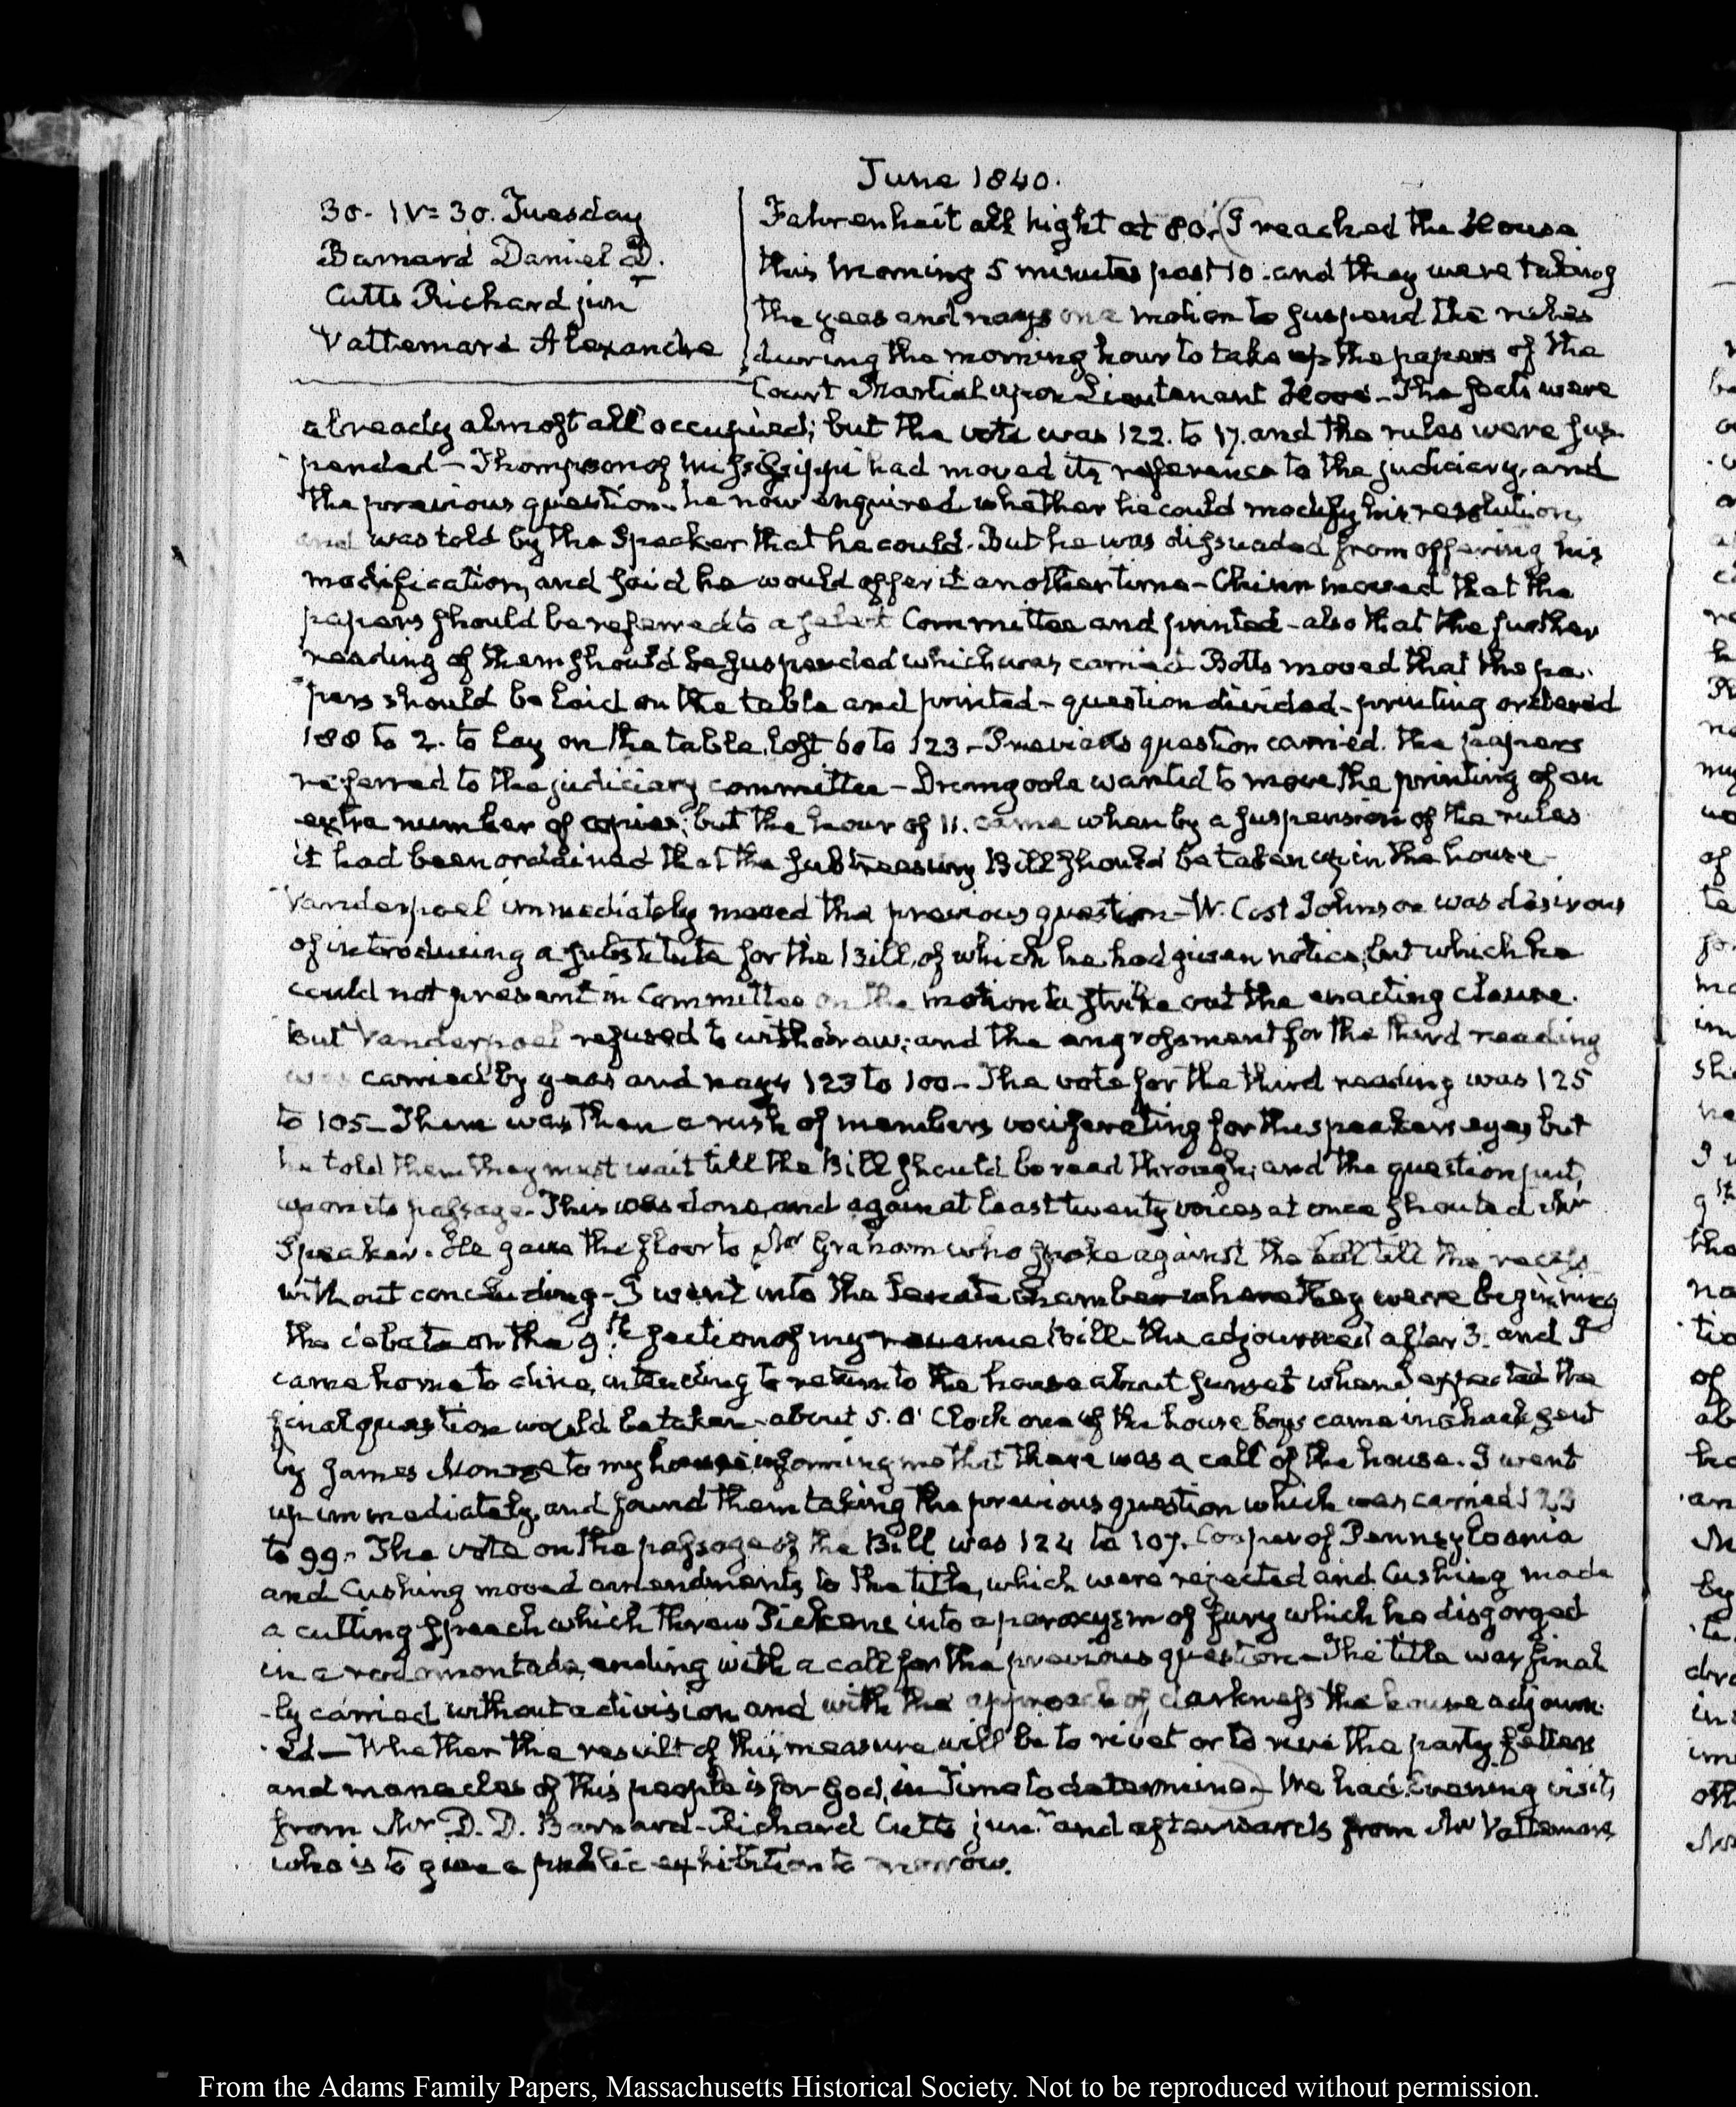 June 1840.
30. IV=30. Tuesday
Barnard Daniel D.
Cutts Richard jun
Vattemare Alexandre
Fahrenheit all night at 80. I reached the House
this morning 5 minutes past 10. and they were taking
the yeas and nays on a motion to suspend the rules
during the morning hour to take up the papers of the
Court Martial upon Lieutenant Hooe – The seats were
already almost all occupied; but the vote was 122. to 17. and the rules were sus-
pended – Thompson of Mississippi had moved its reference to the judiciary, and
the previous question. he now enquired whether he could modify his resolution,
and was told by the Speaker that he could. But he was dissuaded from offering his
modification, and said he would offer it another time – Chinn moved that the
papers should be referred to a select Committee and printed – also that the further
reading of them should be suspended which was carried. Botts moved that the pa-
pers should be laid on the table and printed – question divided – printing ordered
188 to 2. to lay on the table, lost 60 to 123 – Previous question carried. the papers
referred to the judiciary committee – Dromgoole wanted to move the printing of an
extra number of copies; but the hour of 11. came when by a suspension of the rules
it had been ordained that the sub treasury Bill should be taken up in the house –
Vanderpoel immediately moved the previous question – W. Cost Johnson was desirous
of introducing a substitute for the Bill, of which he had given notice, but which he
could not present in Committee on the motion to strike out the enacting clause.
But Vanderpoel refused to withdraw; and the engrossment for the third reading
was carried by yeas and nays 123 to 100 – The vote for the third reading was 125
to 105 – There was then a rush of members vociferating for the speakers eyes but
he told them they must wait till the Bill should be read through; and the question put,
upon its passage. This was done, and again at least twenty voices at once shouted Mr
Speaker. He gave the floor to Mr Graham who spoke against the bill till the recess
without concluding – I went into the Senate chamber where they were beginning
the debate on the 9th. section of my revenue Bill – the adjourned after 3. and I
came home to dine, intending to return to the house about sunset when I expected the
final question would be taken – about 5. O'Clock one of the house boys came in a hack sent
by James Monroe to my house informing me that there was a call of the house. I went
up immediately, and found them taking the previous question which was carried 123
to 99. The vote on the passage of the Bill was 124 to 107. Cooper of Pennsylvania
and Cushing moved amendments to the title, which were rejected and Cushing made
a cutting speech which threw Pickens into a paroxysm of fury which he disgorged
in a rodomontade, ending with a call for the previous question – The title was final-
-ly carried without a division and with the approach of darkness the house adjourn-
-ed – Whether the result of this measure will be to rivet or to rive the party fetters
and manacles of this people is for God, in Time to determine – We had Evening visits
from Mr D. D. Barnard – Richard Cutts junr. and afterwards from Mr Vattemare
who is to give a public exhibition to morrow.
From the Adams Family Papers, Massachusetts Historical Society. Not to be reproduced without permission.